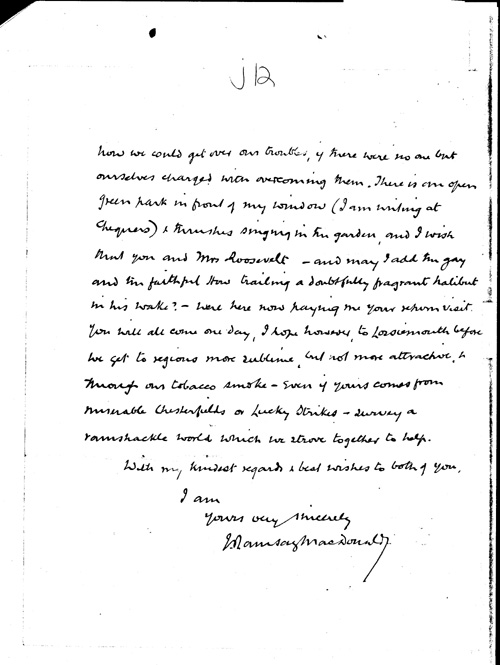 J12
how we could get over our troubles, if there were no one but
ourselves charged with overcoming them. There is an open
green park in front of my window (I am writing at
Chequers) & thrushes singing in the garden, and I wish
that you and Mrs Roosevelt – and may I add the gay
and the faithful Howe trailing a doubtfully fragrant halibut
in his wake? – were here now paying me your return visit.
You will all come one day, I hope however, to Lossiemouth before
we get to regions more sublime, but not more attractive, &
through our tobacco smoke – Even if yours comes from
miserable Chesterfields or Lucky Strikes – survey a
ramshackle world which we strove together to help.
With my kindest regards & best wishes to both of you,
I am
Yours very sincerely
J Ramsay MacDonald